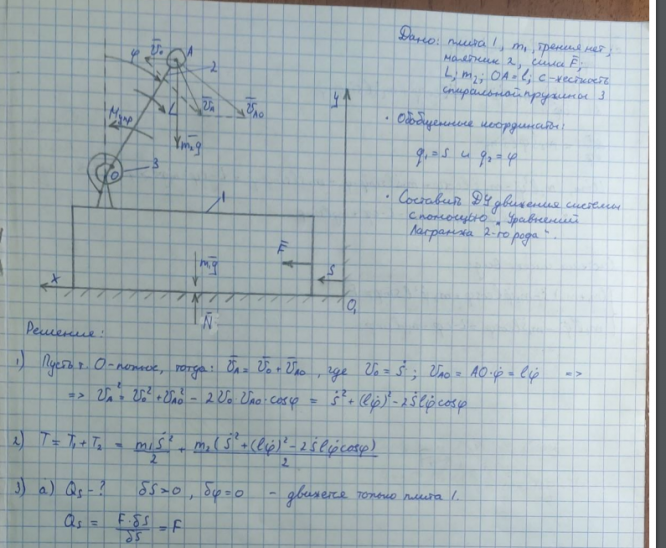 Дано: плита 1, m₁, трения нет;
маятник 2, сила F;
L; m₂; OA = l; c - жесткость
спиральной пружины 3
• Обобщенные координаты:
q₁ = s и q₂ = φ
• Составить ДУ движения системы
с помощью „Уравнений
Лагранжа 2-го рода".
φ
V̄₀
A
2
L
V̄A
V̄AO
Mупр
m₂g̅
O
3
1
y
F̄
s
m₁g̅
x
N̄
O₁
Решение:
1) Пусть т. O - полюс, тогда: V̄A = V̄₀ + V̄AO, где V₀ = ṡ; VAO = AO·φ̇ = lφ̇ =>
=> VA² = V₀² + VAO² - 2V₀ VAO·cosφ = ṡ² + (lφ̇)² - 2ṡlφ̇cosφ
2) T = T₁ + T₂ = m₁ṡ²/2 + m₂(ṡ² + (lφ̇)² - 2ṡlφ̇cosφ)/2
3) a) Qs - ? δs > 0, δφ = 0 - движется только плита 1.
Qs = F·δs/δs = F